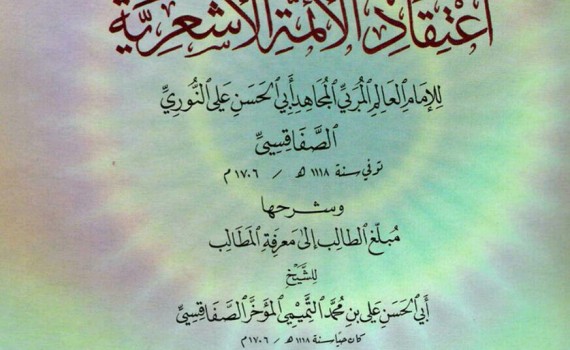 اعْتِقَادِ الأَئِمَّةِ الأَشْعَرِيَّةِ
لِلإِمَامِ العَالِمِ المُرَبِّي المُجَاهِدِ أَبِي الحَسَنِ عَلِي النُّورِيِّ
الصَّفَاقِسِيِّ
توفي سنة ١١١٨ هـ / ١٧٠٦ م
وشرحها
مُبلّغ الطالِب إلى مَعرِفَةِ المَطَالِب
لِلشَّيْخِ
أَبِي الحَسَن عَلِي بن مُحَمَّد التَّمِيمِي المُؤَخَّر الصَّفَاقِسِيِّ
كان حيا سنة ١١١٨ هـ / ١٧٠٦ م